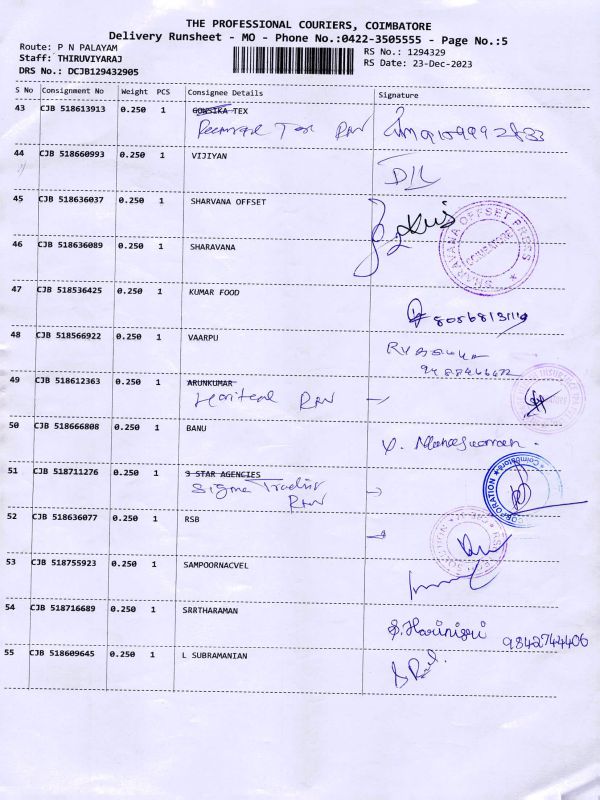 THE PROFESSIONAL COURIERS, COIMBATORE
Delivery Runsheet - MO - Phone No.:0422-3505555 - Page No.:5
Route: P N PALAYAM
Staff: THIRUVIYARAJ
DRS No.: DCJB129432905
RS No.: 1294329
RS Date: 23-Dec-2023
S No Consignment No Weight PCS Consignee Details Signature
43 CJB 518613913 0.250 1 GOWSIKA TEX
Tex RAW
44 CJB 518660993 0.250 1 VIJIYAN
45 CJB 518636037 0.250 1 SHARVANA OFFSET
SHARAVANA OFFSET PRESS
COIMBATORE
46 CJB 518636089 0.250 1 SHARAVANA
47 CJB 518536425 0.250 1 KUMAR FOOD
48 CJB 518566922 0.250 1 VAARPU
49 CJB 518612363 0.250 1 ARUNKUMAR
RAW
50 CJB 518666808 0.250 1 BANU
51 CJB 518711276 0.250 1 3 STAR AGENCIES
Sigma Traders
RAW
CORPORATION
Coimbatore
52 CJB 518636077 0.250 1 RSB
53 CJB 518755923 0.250 1 SAMPOORNACVEL
54 CJB 518716689 0.250 1 SRRTHARAMAN
9842744406
55 CJB 518609645 0.250 1 L SUBRAMANIAN